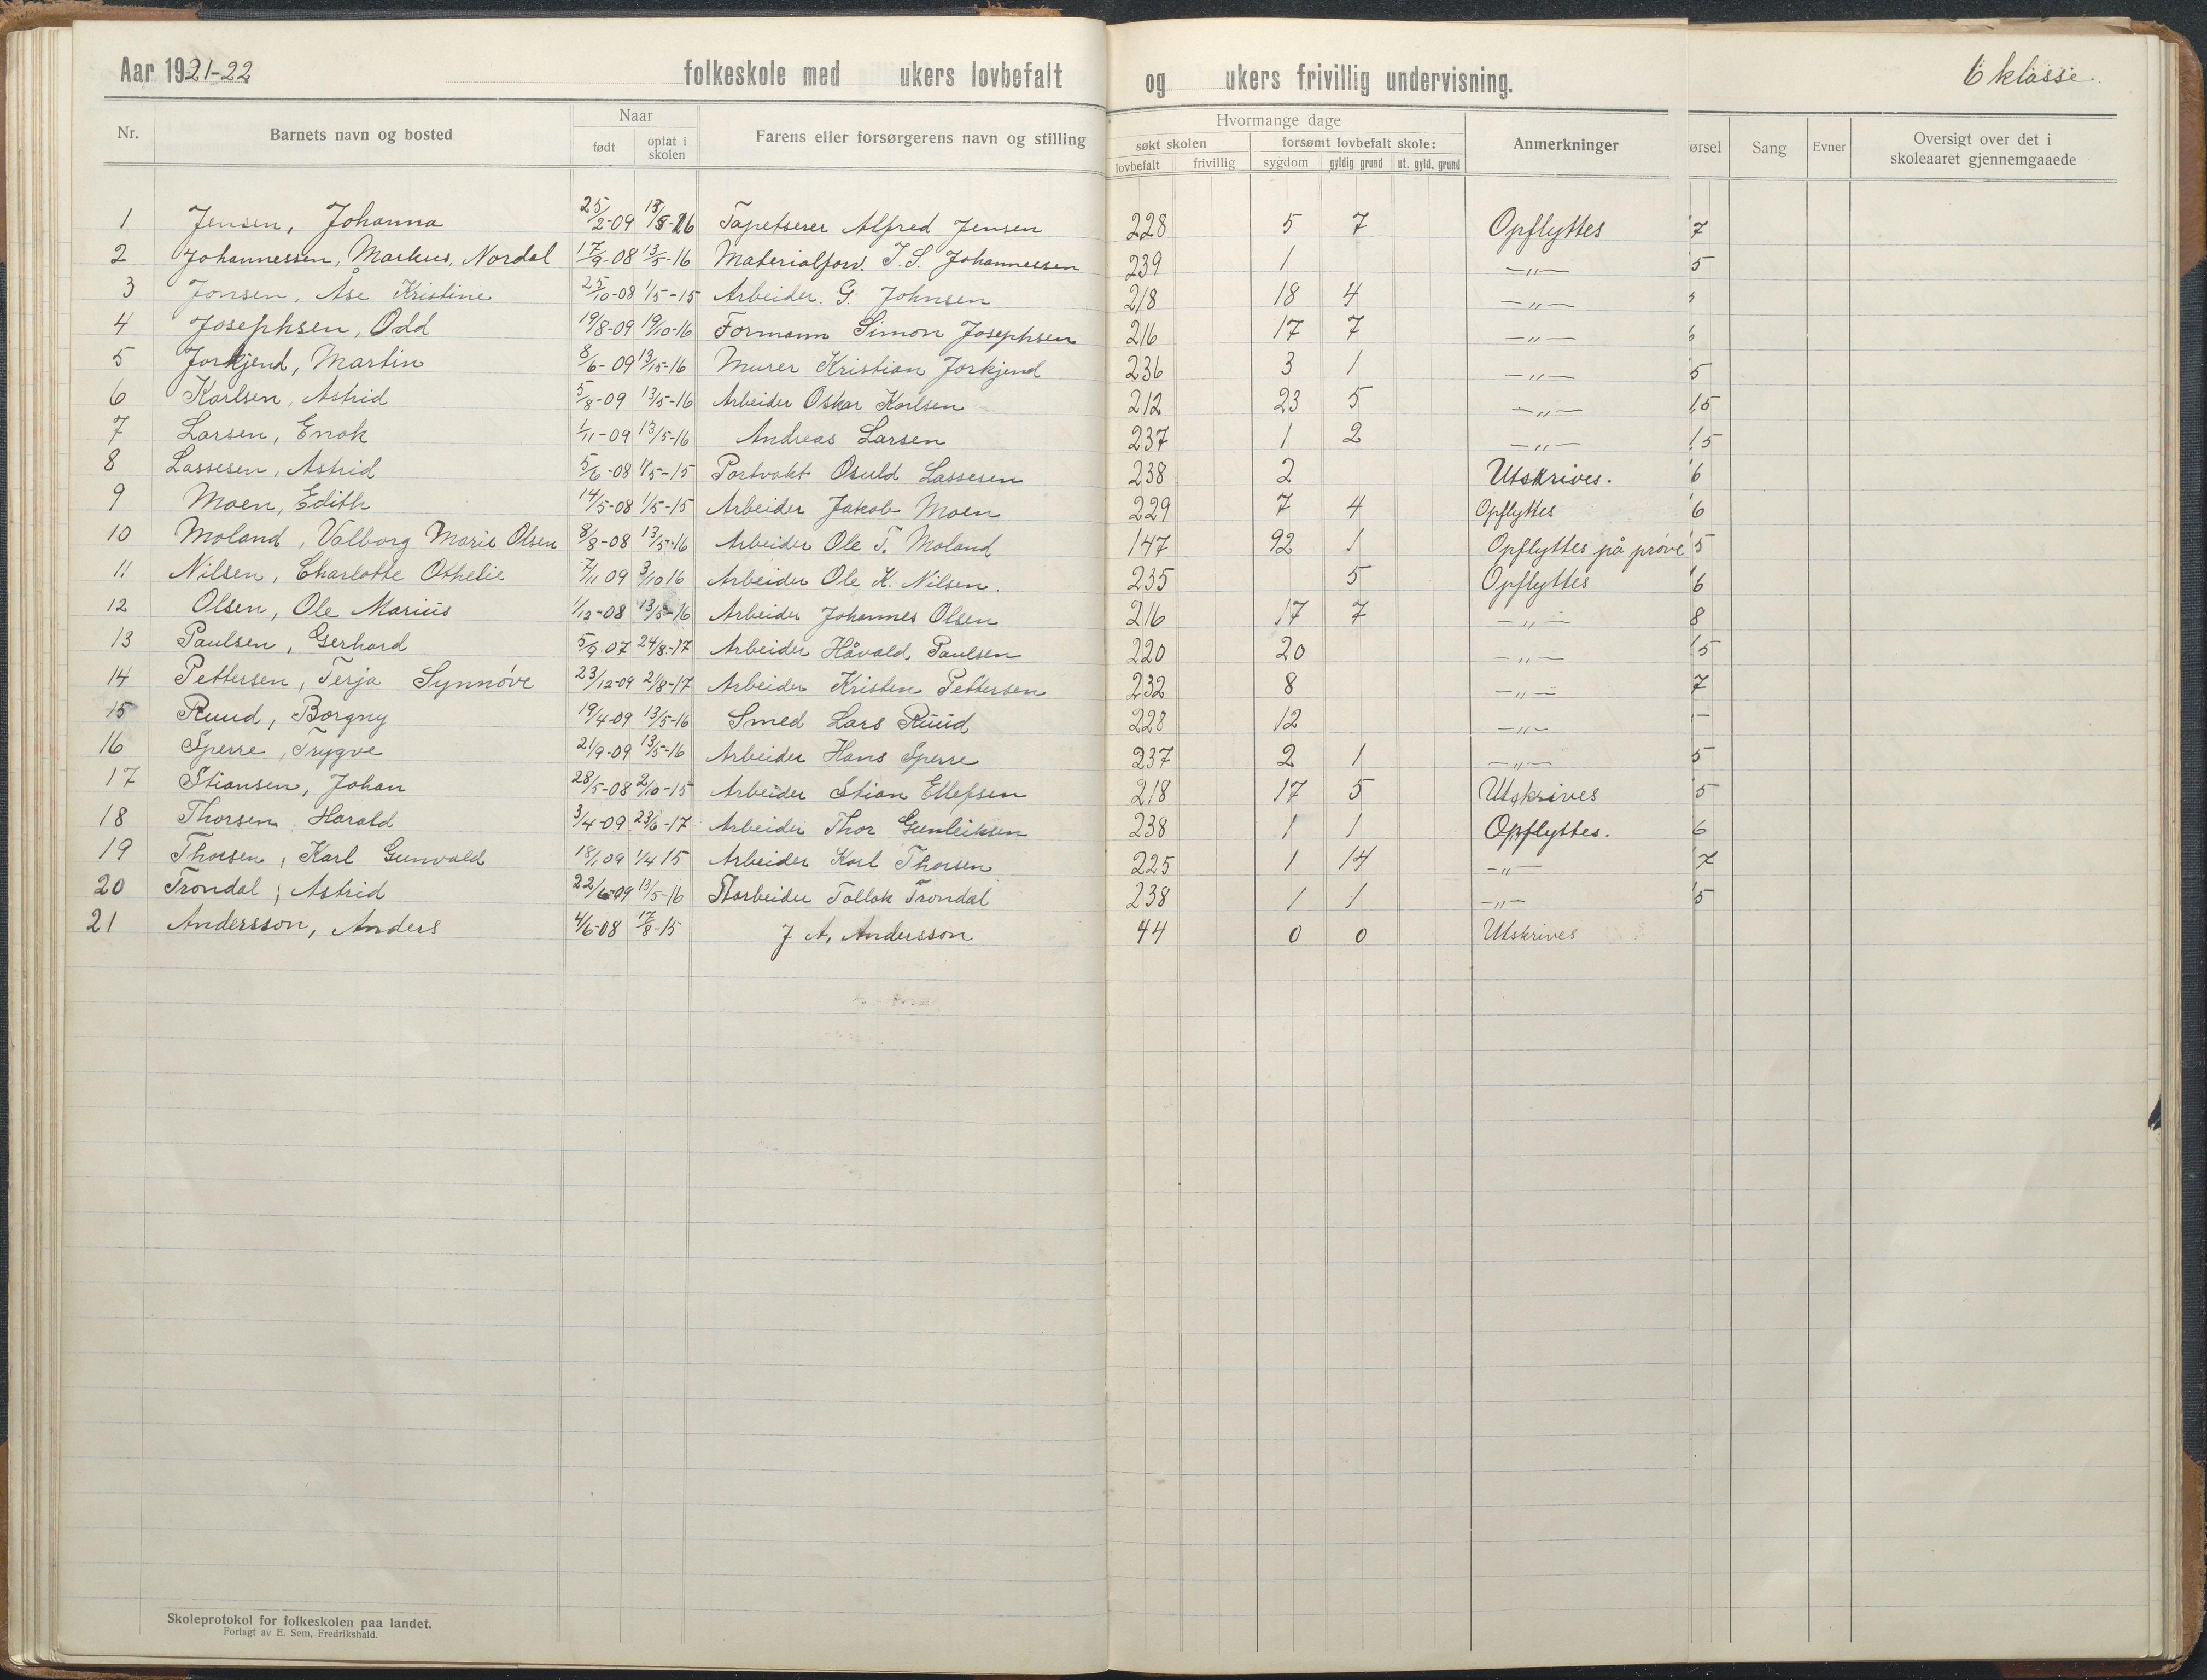 Aar 1921-22 folkeskole med ukers lovbefalt og ukers frivillig undervisning. 6 klasse.
Nr. Barnets navn og bosted Naar Farens eller forsørgerens navn og stilling Hvormange dage Anmerkninger ørsel Sang Evner Oversigt over det i skoleaaret gjennemgaaede
født optat i skolen søkt skolen forsømt lovbefalt skole:
lovbefalt frivillig sygdom gyldig grund ut. gyld. grund
1 Jensen, Johanna 25/2-09 13/5-16 Tapetserer Alfred Jensen 228 5 7 Opflyttes 7
2 Johannessen, Markus, Nordal 17/9-08 13/5-16 Materialforv. J. S. Johannessen 239 1 -"- 5
3 Jonsen, Åse Kristine 25/10-08 1/5-15 Arbeider. G. Johnsen 218 18 4 -"-
4 Josephsen, Odd 19/8-09 19/10-16 Formann Simon Josephsen 216 17 7 -"-
5 Jorkjend, Martin 8/6-09 13/15-16 Murer Kristian Jorkjend 236 3 1 -"- 5
6 Karlsen, Astrid 5/8-09 13/5-16 Arbeider Oskar Karlsen 212 23 5 -"- 1,5
7 Larsen, Enok 1/11-09 13/5-16 Andreas Larsen 237 1 2 -"- 1,5
8 Lassesen, Astrid 5/6-08 1/5-15 Portvakt Osuld Lassesen 238 2 Utskrives. 6
9 Moen, Edith 14/5-08 1/5-15 Arbeider Jakob Moen 229 7 4 Opflyttes 6
10 Moland, Valborg Marie Olsen 8/8-08 13/5-16 Arbeider Ole T. Moland 147 92 1 Opflyttes på prøve 5
11 Nilsen, Charlotte Othelie 7/11 09 3/10 16 Arbeider Ole K. Nilsen. 235 5 Opflyttes 6
12 Olsen, Ole Marius 1/12-08 13/5-16 Arbeider Johannes Olsen 216 17 7 -"- 8
13 Paulsen, Gerhard 5/9 07 24/8-17 Arbeider Håvald Paulsen 220 20 -"- 5
14 Pettersen, Terja Synnóve 23/12-09 2/8-17 Arbeider Kristen Pettersen 232 8 -"- 7
15 Ruud, Borgny 19/4-09 13/5-16 Smed Lars Ruud 228 12 -"- -
16 Sperre, Trygve 21/9-09 13/5-16 Arbeider Hans Sperre 237 2 1 -"- 5
17 Stiansen, Johan 28/5-08 2/10-15 Arbeider Stian Ellefsen 218 17 5 Utskrives 5
18 Thorsen Harald 3/4-09 23/6-17 Arbeider Thor Gunleiksen 238 1 1 Opflyttes. 6
19 Thorsen, Karl Gunvald 18/1 09 1/4 15 Arbeider Karl Thorsen 225 1 14 -"- 7
20 Trondal, Astrid 22/6-09 13/5-16 Arbeider Tollak Trondal 238 1 1 -"- 5
21 Andersson, Anders 4/6-08 17/8-15 J A. Andersson 44 0 0 Utskrives
Skoleprotokol for folkeskolen paa landet.
Forlagt av E. Sem, Fredrikshald.